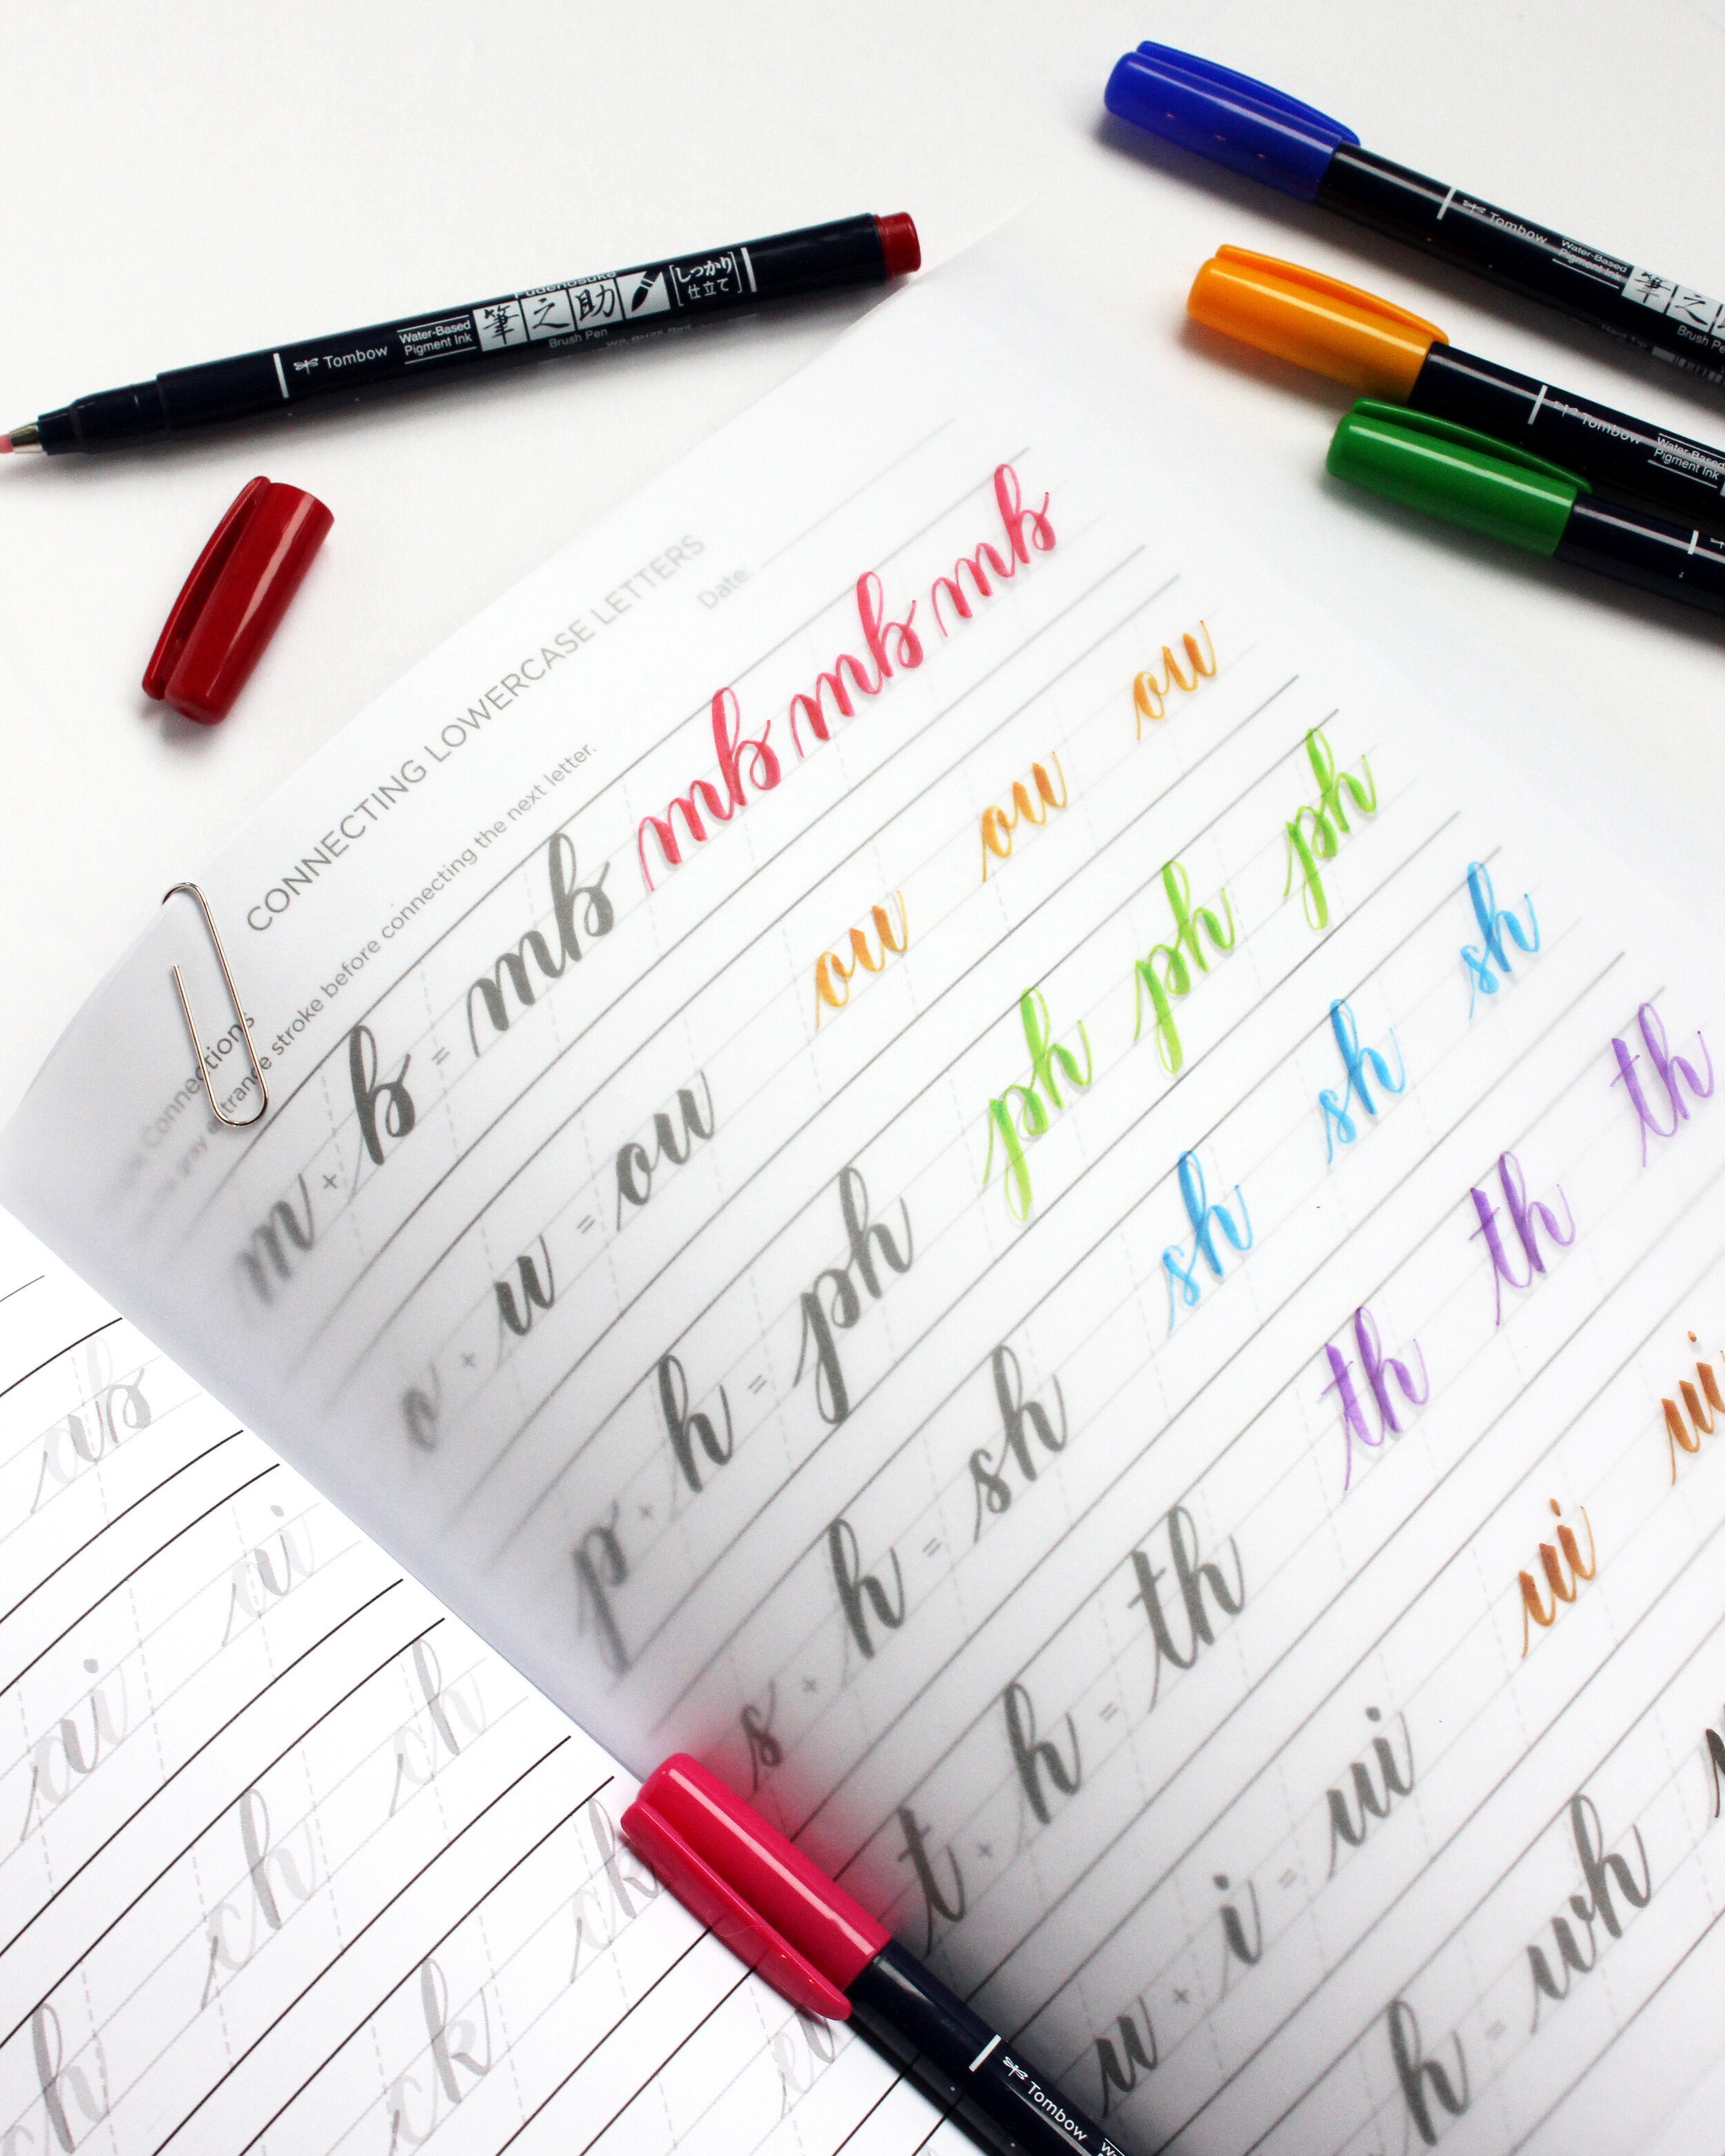 Tombow
Water-Based
Pigment Ink
Fudenosuke
筆之助
Brush Pen
しっかり
仕立て
Tombow
Water-Based
Pigment Ink
筆之
Tombow
Water-Based
Pigment Ink
CONNECTING LOWERCASE LETTERS
Date
Connections
gray entrance stroke before connecting the next letter.
m + b = mb mb mb mb
o + u = ou ou ou ou
p + h = ph ph ph ph
s + h = sh sh sh sh
t + h = th th th th
u + i = ui ui ui
h = wh
ab
ai ai
ch ch ch
ck ck
Tombow